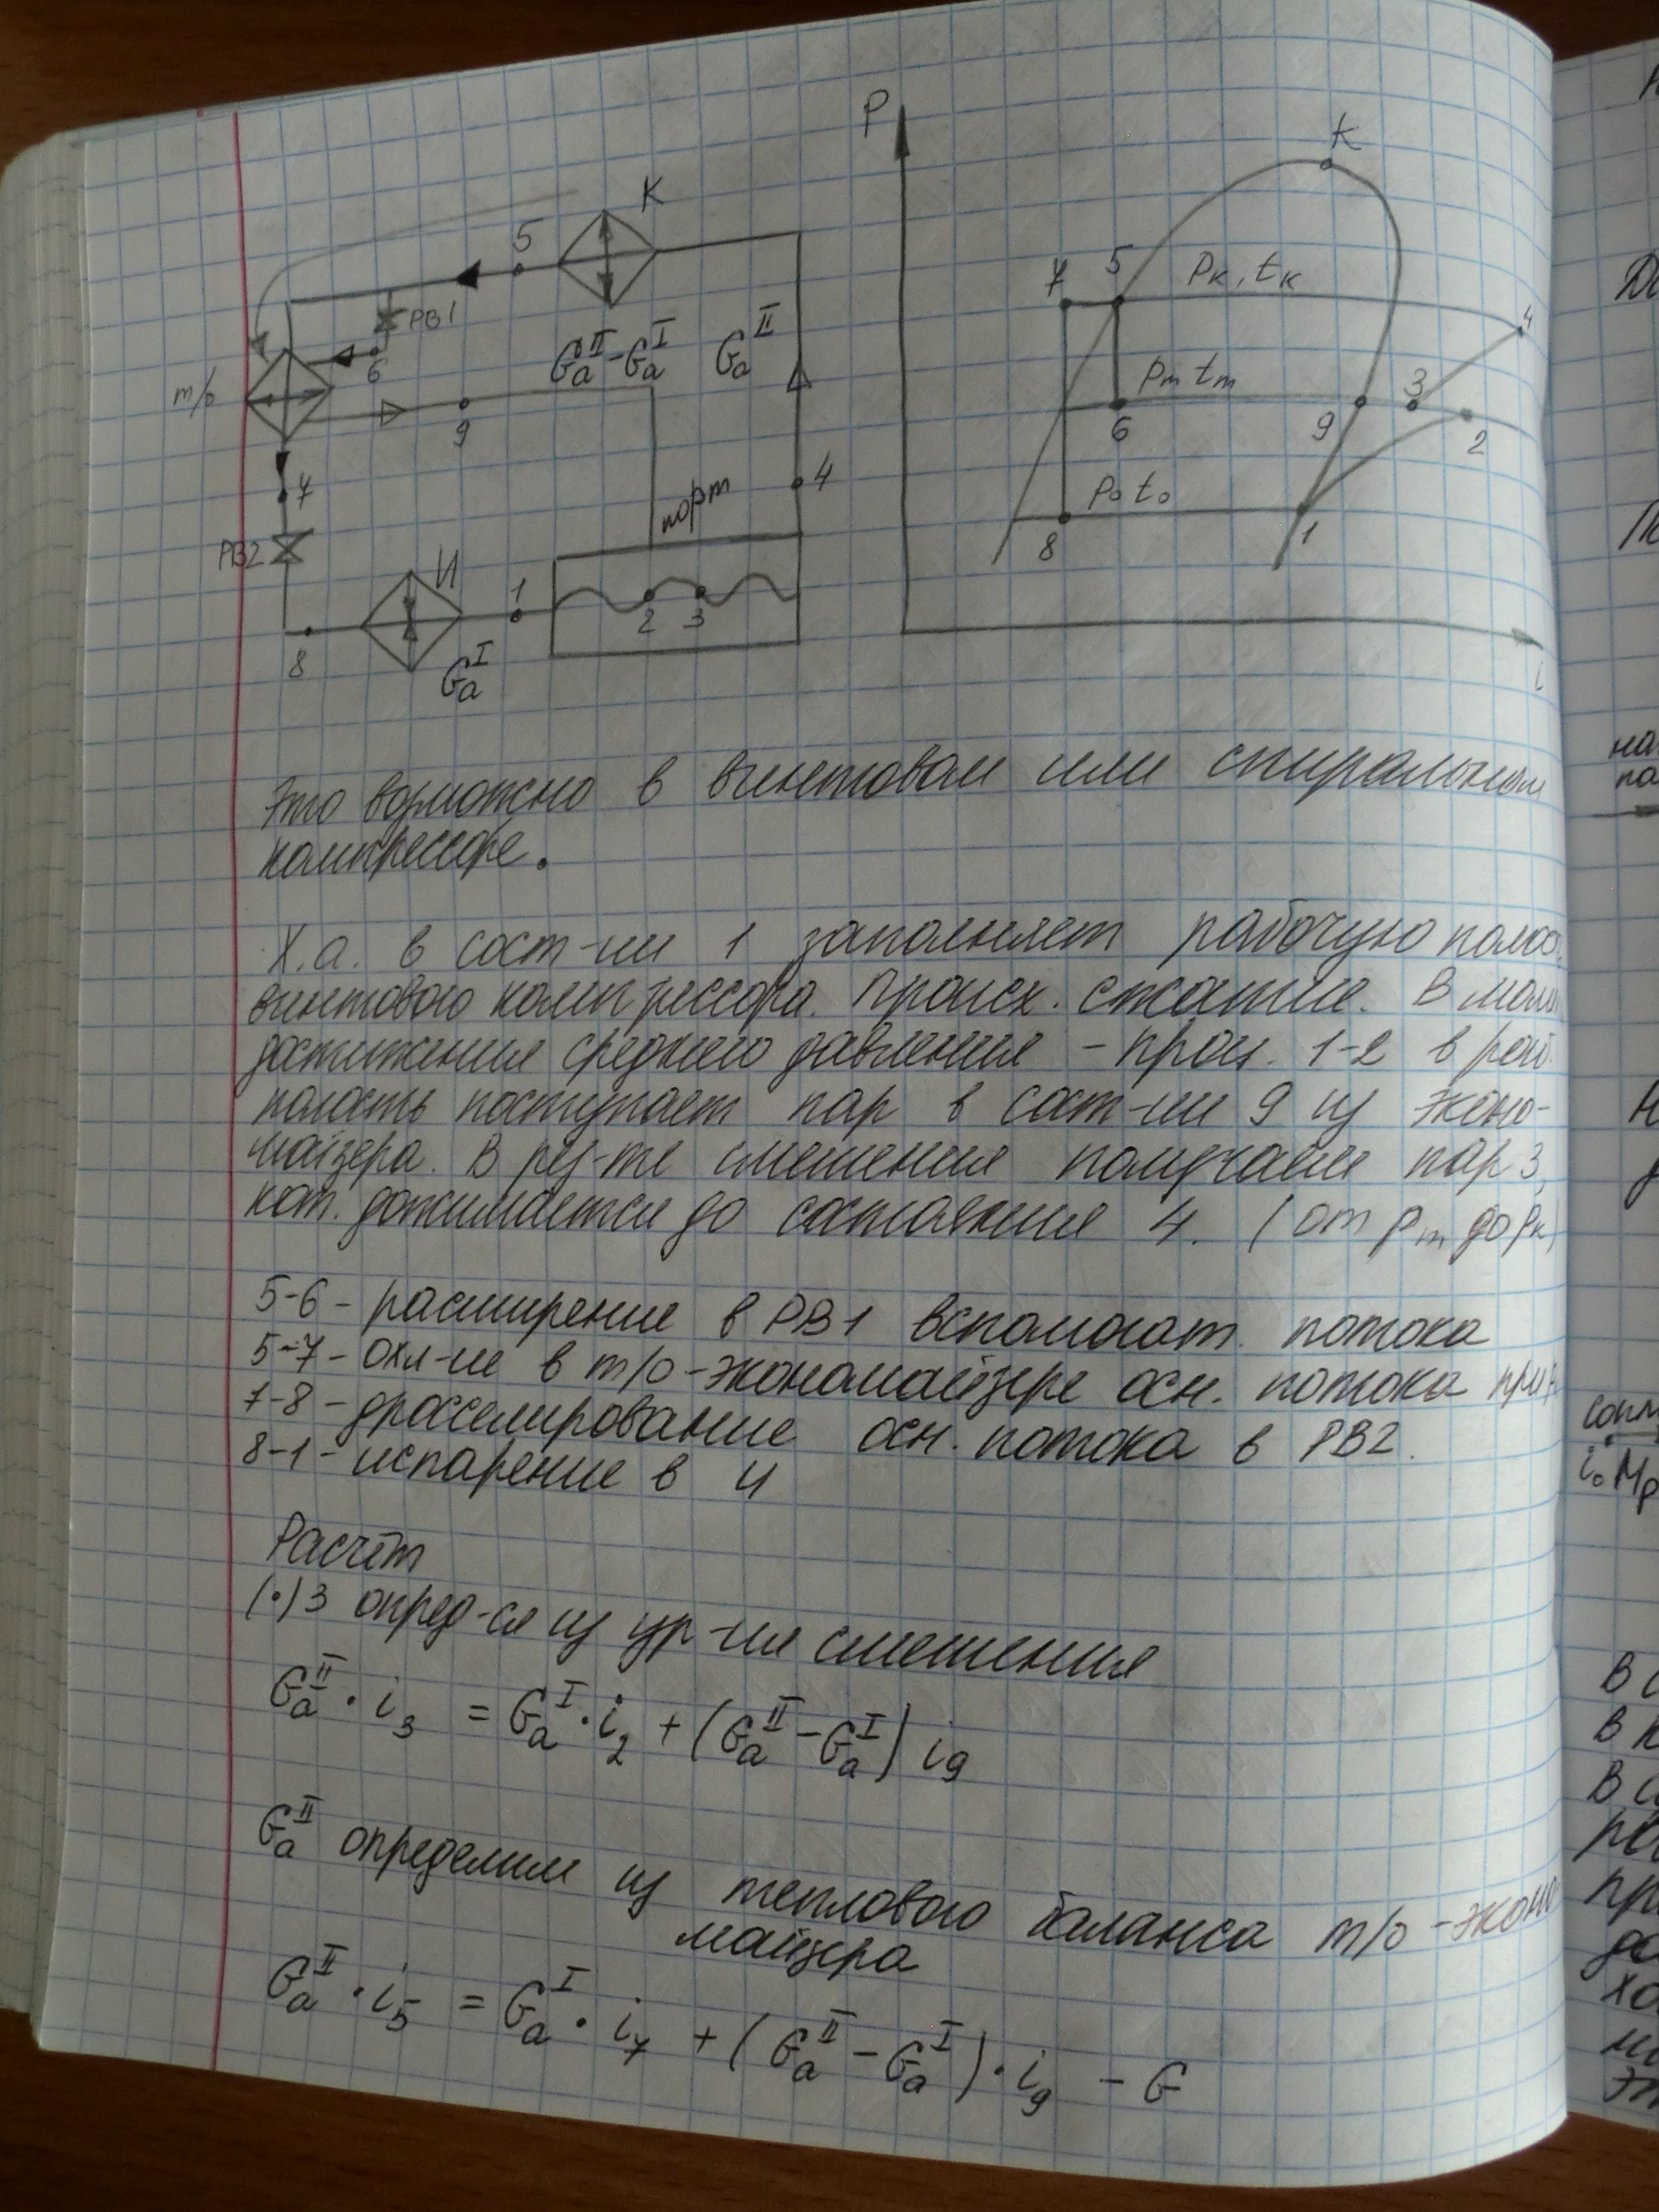 К
5
РВ1
6
т/о
9
Gₐᴵᴵ-Gₐᴵ
Gₐᴵᴵ
7
порт
4
РВ2
И
1
2 3
8
Gₐᴵ
P
K
7 5 Pк, tк
4
Pm tm
6
9
3
2
P₀ t₀
8
1
i
Это возможно в винтовом или спиральном
компрессоре.
Х.а. в сост-ии 1 заполняет рабочую полос
винтового компрессора. Происх. сжатие. В мом
достижения среднего давления – проц. 1-2 в раб
полость поступает пар в сост-ии 9 из эконо-
майзера. В рез-те смешения получаем пар 3,
кот. дожимается до состояния 4. (от Pm до Pк)
5-6 – расширение в РВ1 вспомогат. потока
5-7 – охл-ие в т/о-экономайзере осн. потока при
7-8 – дросселирование осн. потока в РВ2.
8-1 – испарение в И
Расчёт
(•)3 опред-ся из ур-ия смешения
Gₐᴵᴵ · i₃ = Gₐᴵ · i₂ + (Gₐᴵᴵ - Gₐᴵ) i₉
Gₐᴵᴵ определим из теплового баланса т/о-эконо
майзера
Gₐᴵᴵ · i₅ = Gₐᴵ · i₇ + (Gₐᴵᴵ - Gₐᴵ) · i₉ - G